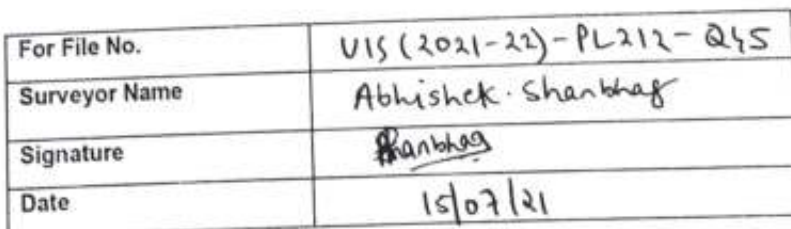 For File No. VIS (2021-22)-PL212-Q45
Surveyor Name Abhishek. Shanbhag
Signature Shanbhag
Date 15/07/21